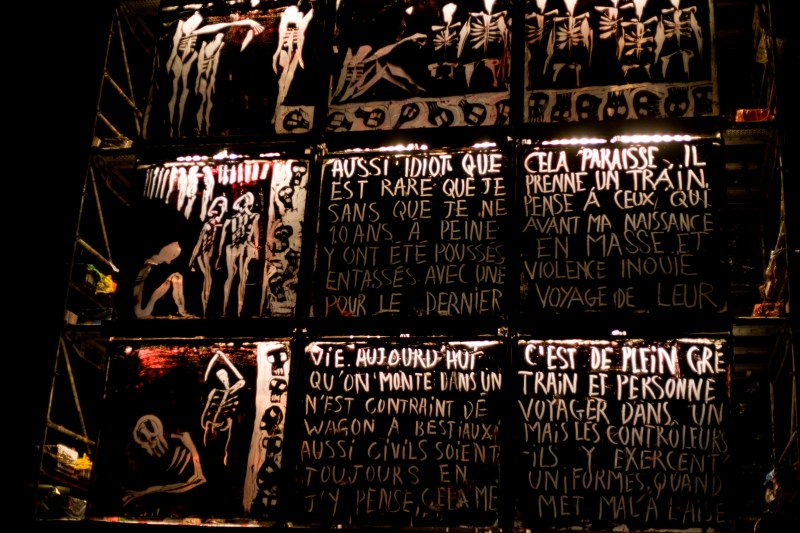 AUSSI IDIOT QUE CELA PARAISSE, IL
EST RARE QUE JE PRENNE UN TRAIN,
SANS QUE JE NE PENSE A CEUX, QUI,
10 ANS A PEINE AVANT MA NAISSANCE
Y ONT ÉTÉ POUSSÉS EN MASSE ET
ENTASSÉS AVEC UNE VIOLENCE INOUIE
POUR LE DERNIER VOYAGE DE LEUR
VIE. AUJOURD'HUI C'EST DE PLEIN GRE
QU'ON MONTE DANS UN TRAIN ET PERSONNE
N'EST CONTRAINT DE VOYAGER DANS UN
WAGON A BESTIAUX MAIS LES CONTROLEURS
AUSSI CIVILS SOIENT -ILS Y EXERCENT
TOUJOURS EN UNIFORMES. QUAND
J'Y PENSE, CELA ME MET MAL A L'AISE